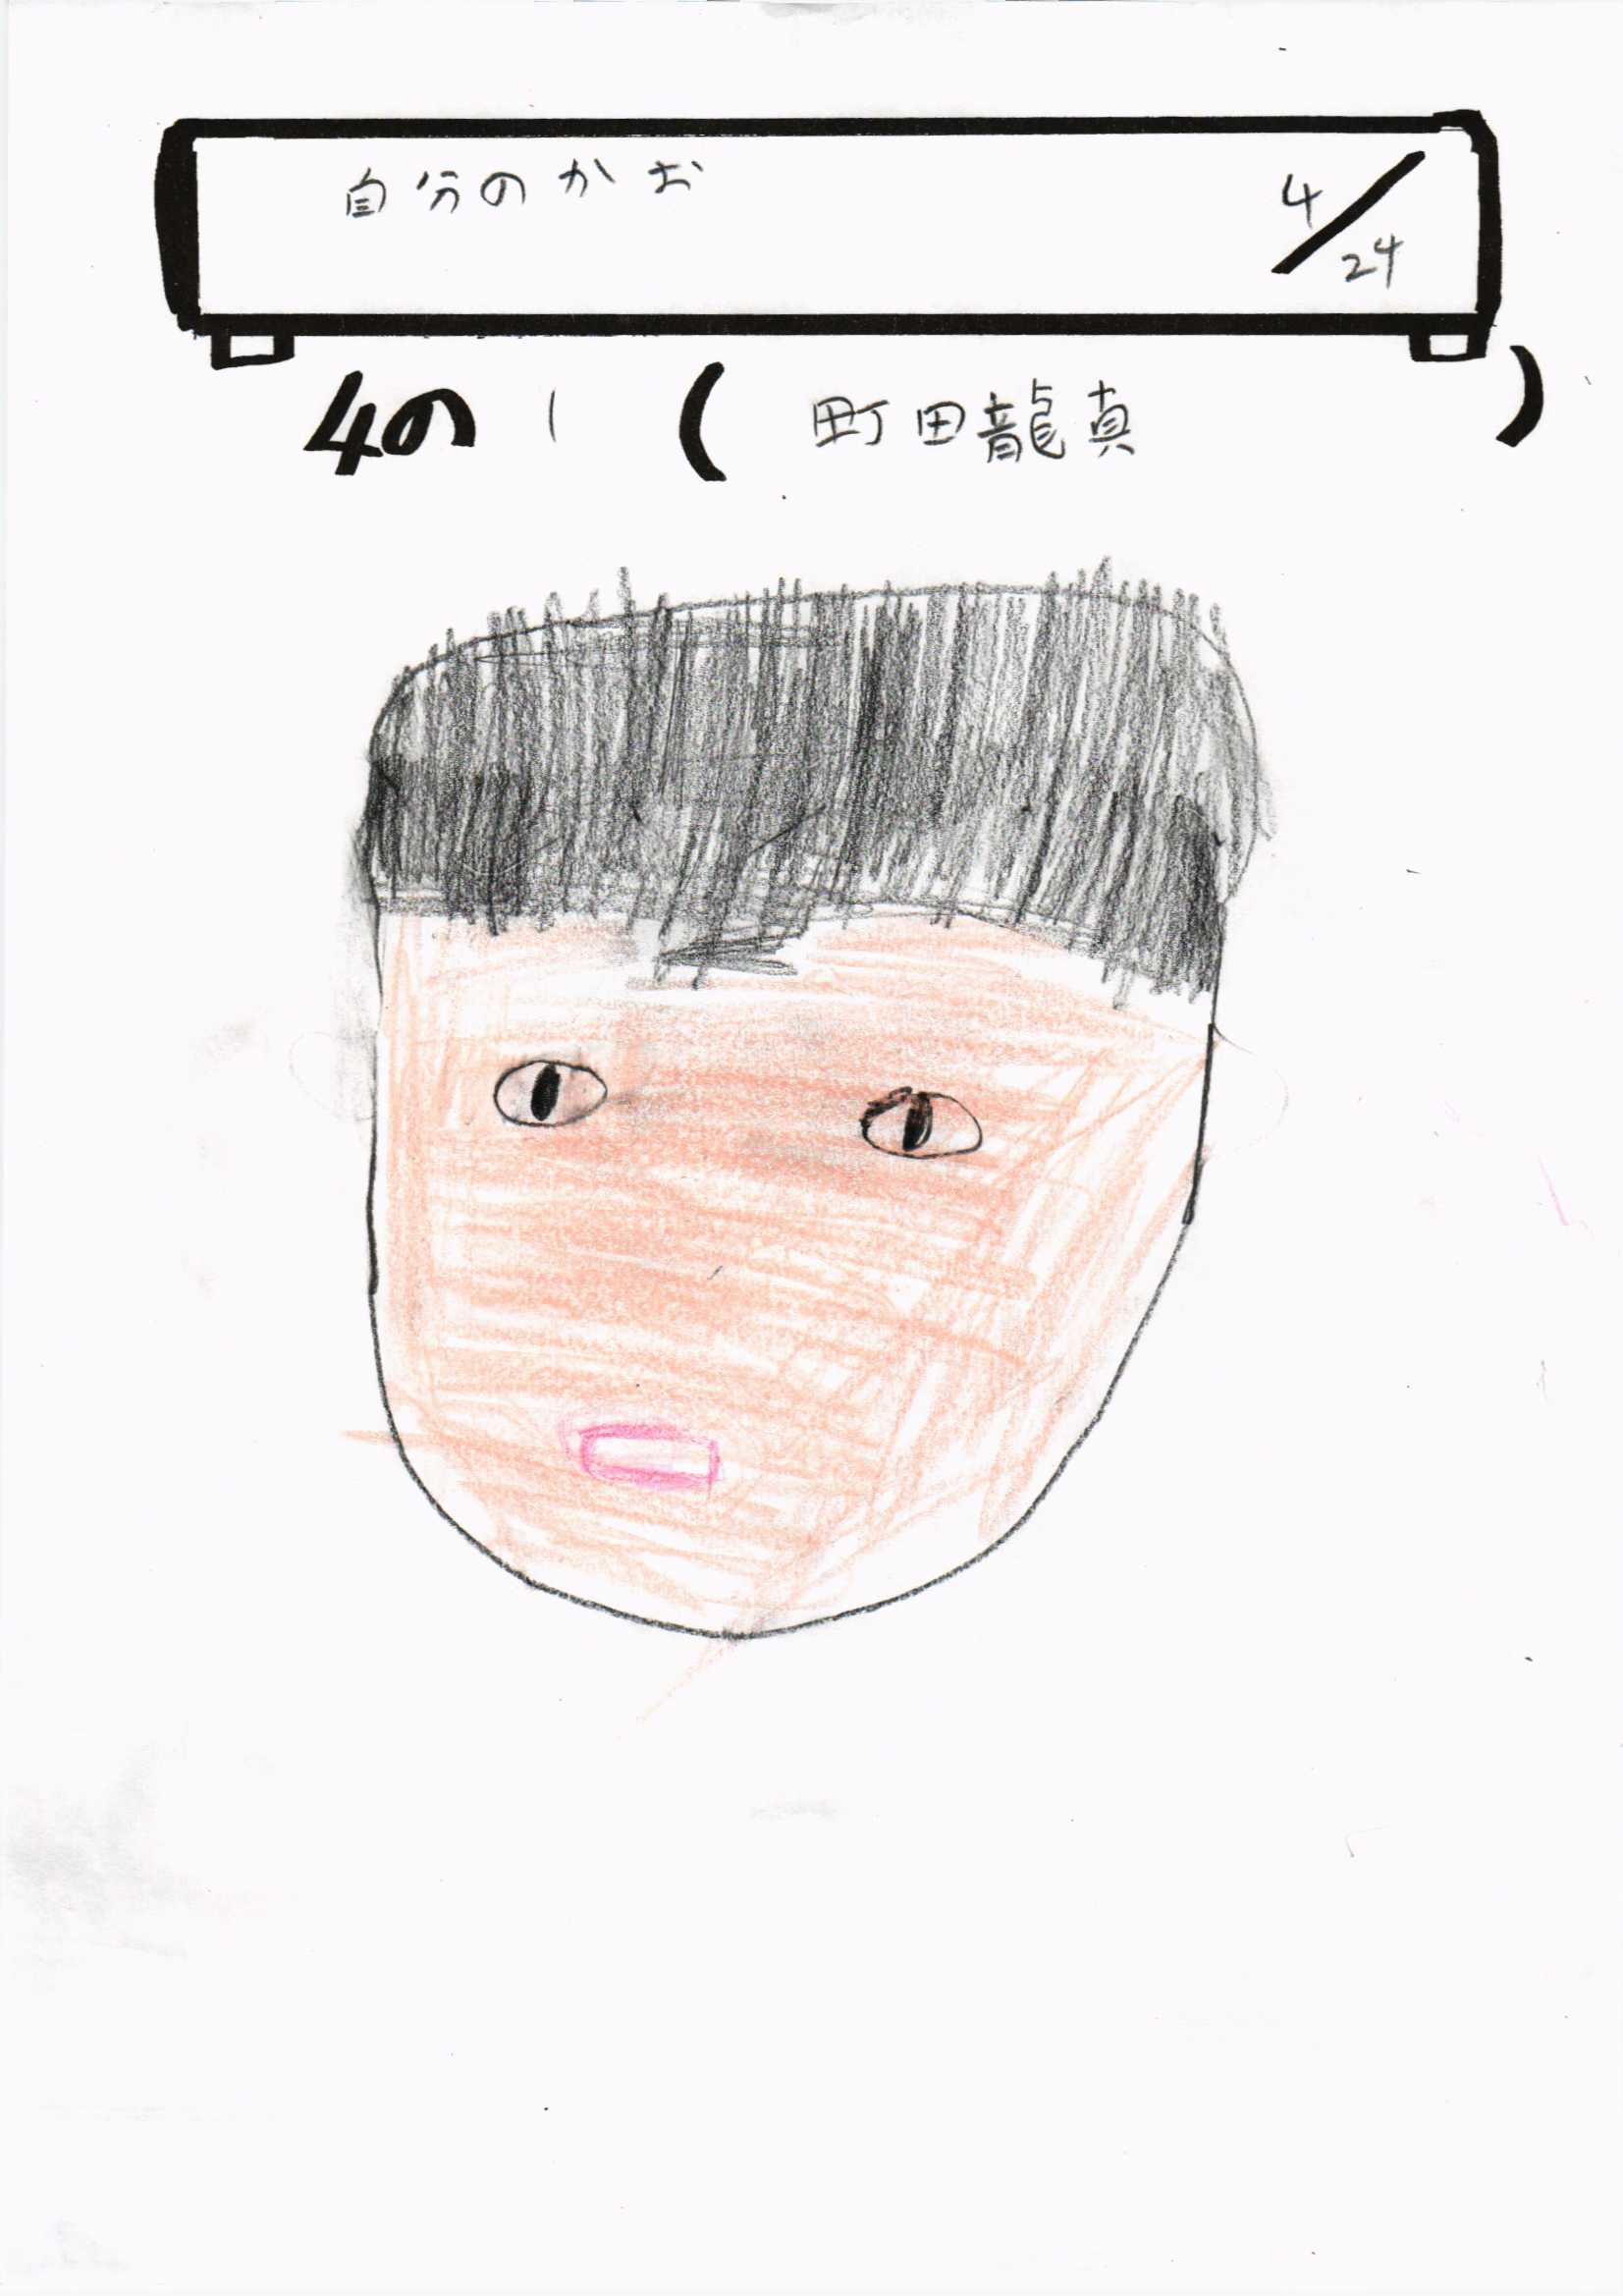 自分のかお 4/24
4の1(町田龍真)